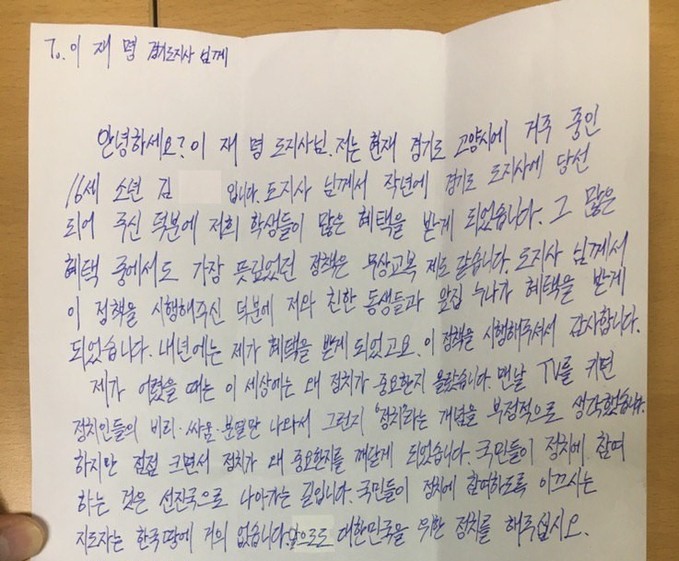 To. 이 재 명 경기도지사 님께
안녕하세요? 이 재 명 도지사님. 저는 현재 경기도 고양시에 거주 중인
16세 소년 김 입니다. 도지사 님께서 작년에 경기도 도지사에 당선
되어 주신 덕분에 저희 학생들이 많은 혜택을 받게 되었습니다. 그 많은
혜택 중에서도 가장 뜻깊었던 정책은 무상교복 제도 같습니다. 도지사 님께서
이 정책을 시행해주신 덕분에 저와 친한 동생들과 앞집 누나가 혜택을 받게
되었습니다. 내년에는 제가 혜택을 받게 되었고요. 이 정책을 시행해주셔서 감사합니다.
제가 어렸을 때는 이 세상에는 왜 정치가 중요한지 몰랐습니다. 맨날 TV를 키면
정치인들의 비리·싸움·분열만 나와서 그런지 '정치'라는 개념을 부정적으로 생각했습니다.
하지만 점점 크면서 정치가 왜 중요한지를 깨닫게 되었습니다. 국민들이 정치에 참여
하는 것은 선진국으로 나아가는 길입니다. 국민들이 정치에 참여하도록 이끄시는
지도자는 한국땅에 거의 없습니다. 앞으로도 대한민국을 위한 정치를 해주십시오.